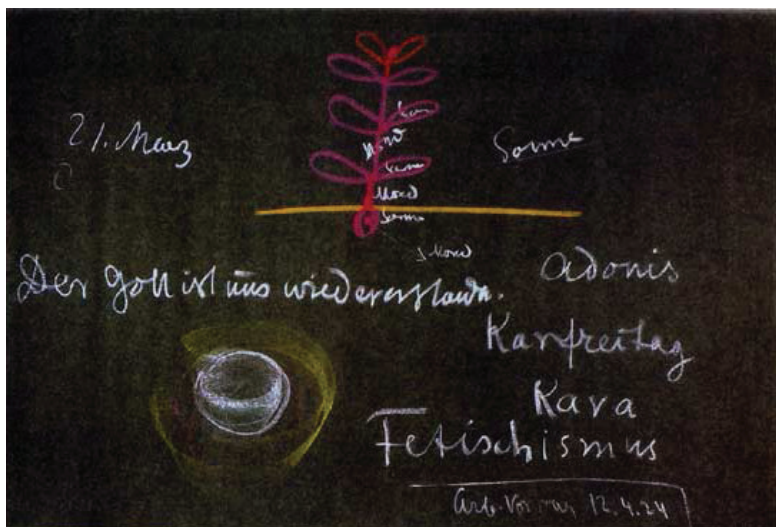 21. März
Sonne
Sonne
Mond
Sonne
Mond
Sonne
Mond
Der Gott ist uns wiedererstanden.
Adonis
Karfreitag
Kara
Fetischismus
12.4.24